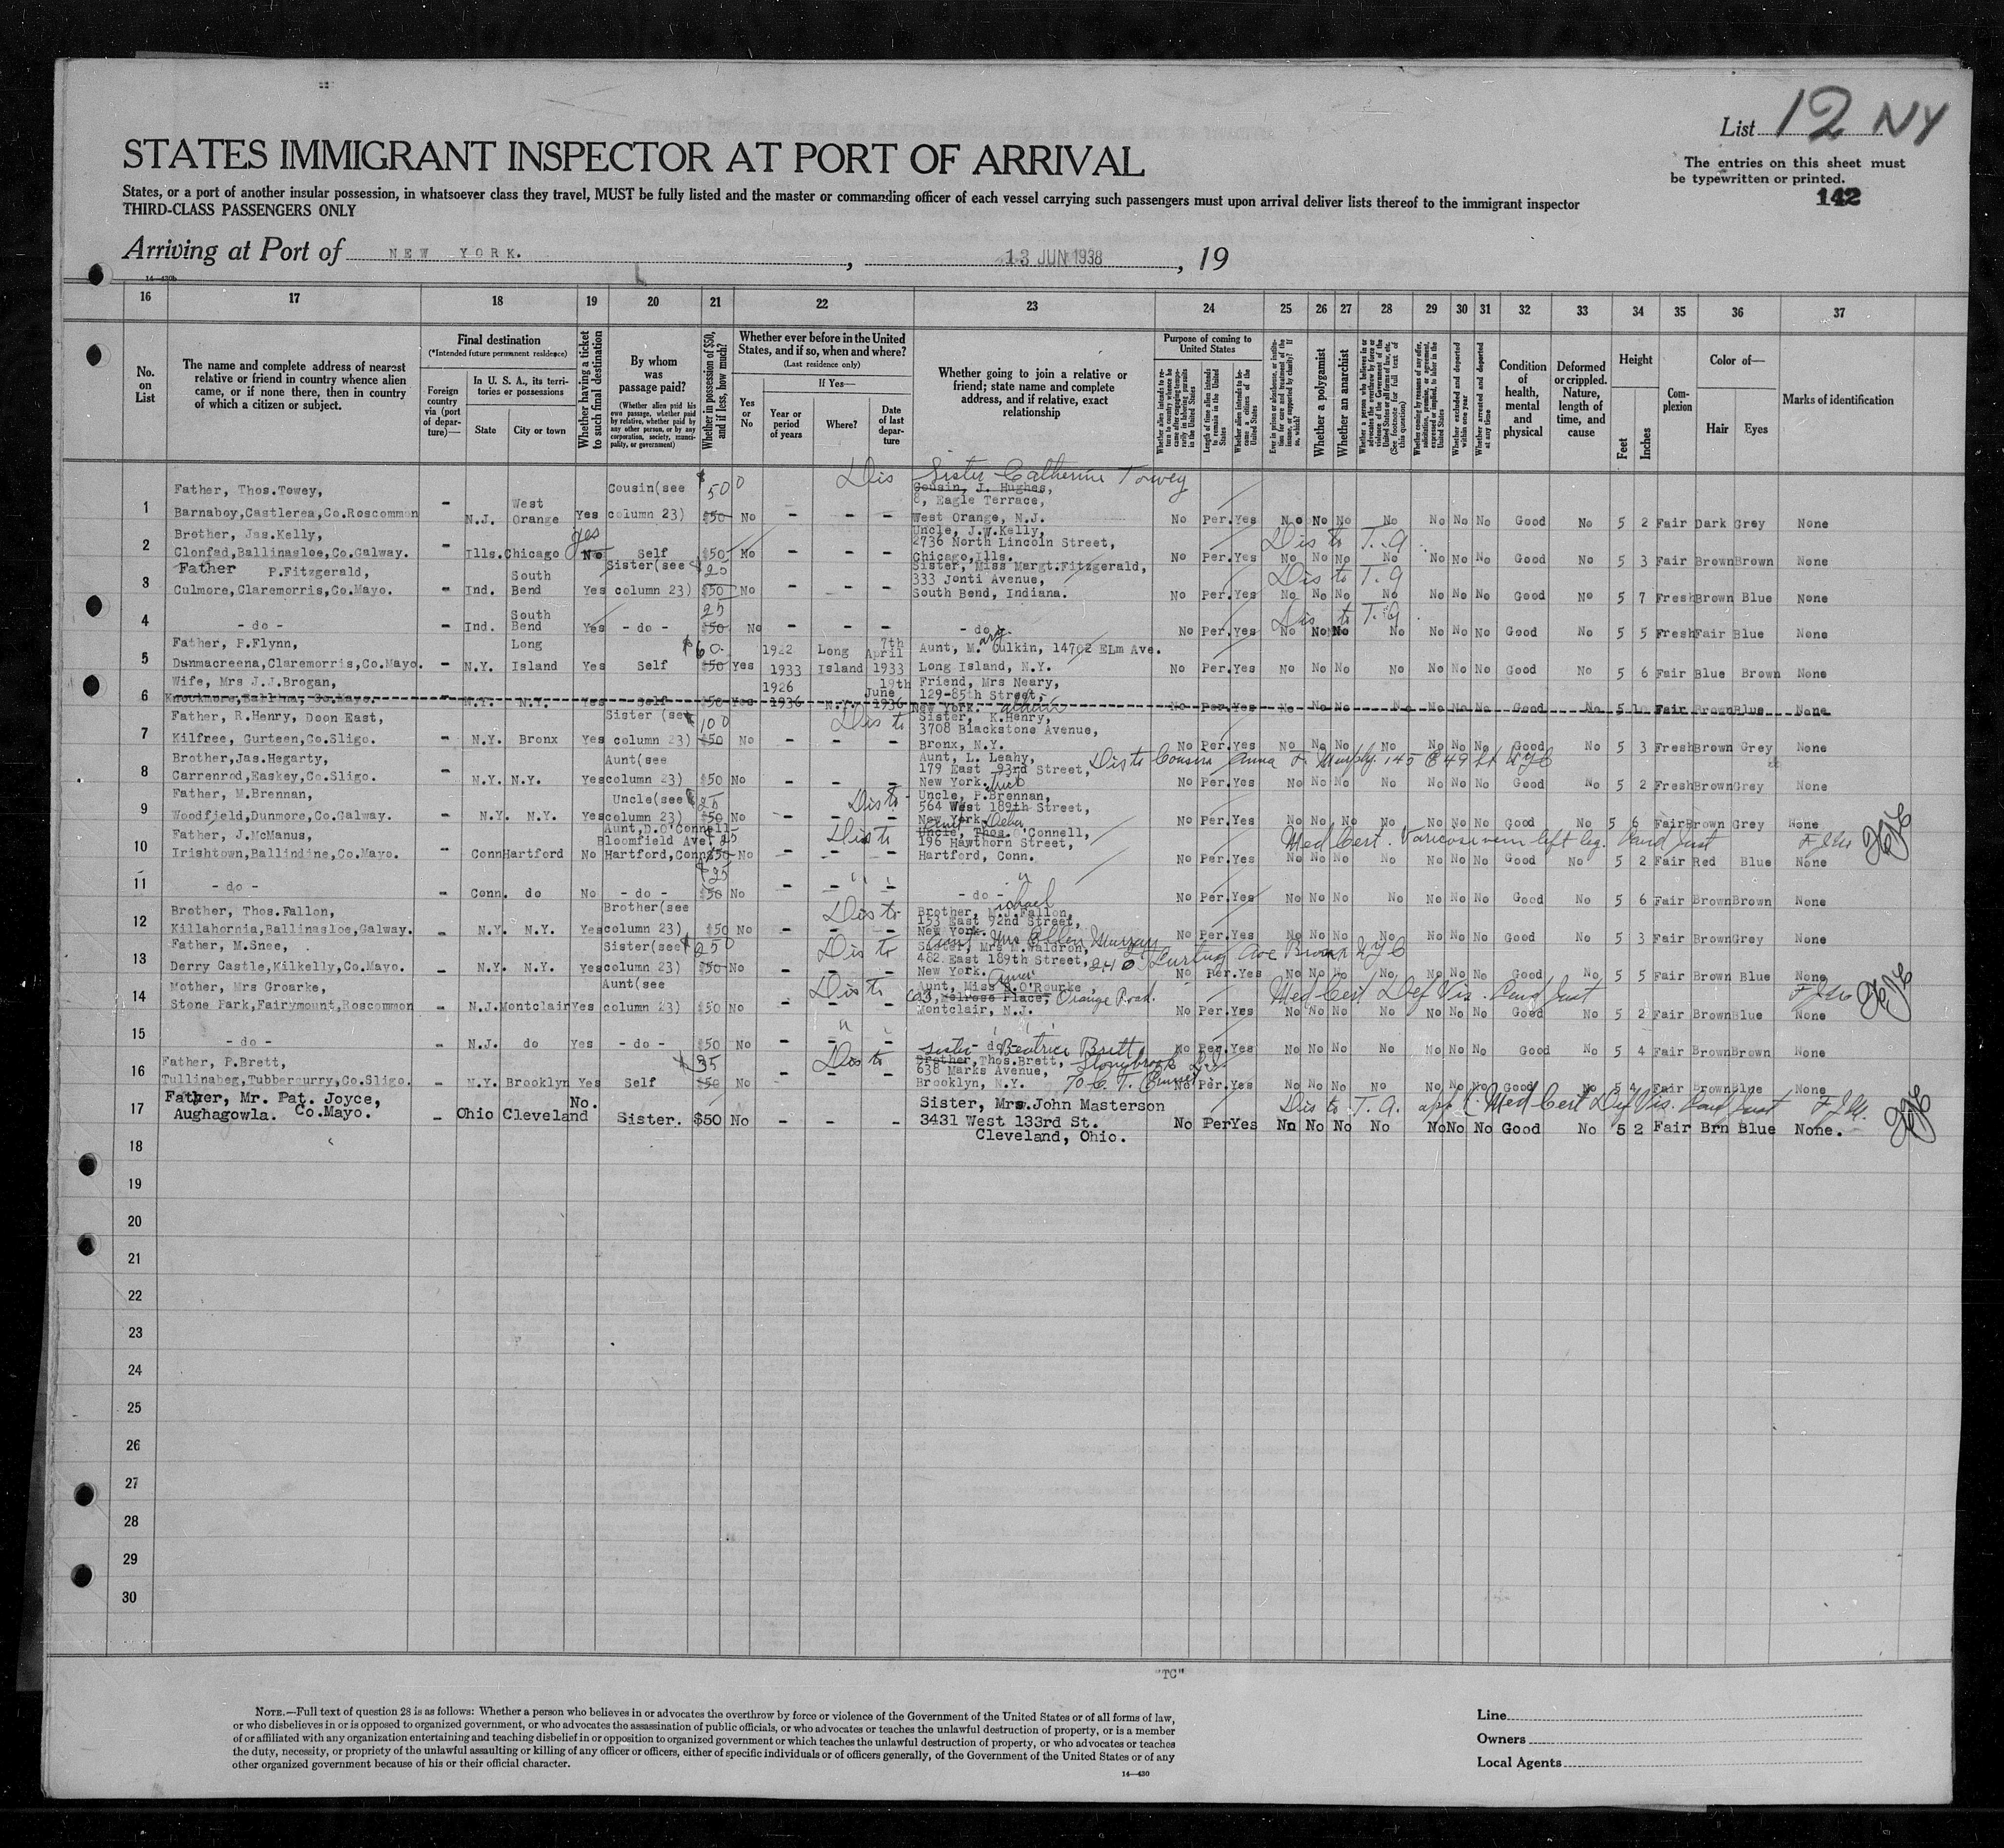 List 12 NY
STATES IMMIGRANT INSPECTOR AT PORT OF ARRIVAL
The entries on this sheet must
be typewritten or printed.
142
States, or a port of another insular possession, in whatsoever class they travel, MUST be fully listed and the master or commanding officer of each vessel carrying such passengers must upon arrival deliver lists thereof to the immigrant inspector
THIRD-CLASS PASSENGERS ONLY
Arriving at Port of NEW YORK. , 13 JUN 1938 , 19
14—430b
16 17 18 19 20 21 22 23 24 25 26 27 28 29 30 31 32 33 34 35 36 37
No. on List
The name and complete address of nearest relative or friend in country whence alien came, or if none there, then in country of which a citizen or subject.
Final destination
(*Intended future permanent residence)
Foreign country via (port of departure)—
In U. S. A., its territories or possessions
State
City or town
Whether having a ticket to such final destination
By whom was passage paid?
(Whether alien paid his own passage, whether paid by relative, whether paid by any other person, or by any corporation, society, municipality, or government)
Whether in possession of $50, and if less, how much?
Whether ever before in the United States, and if so, when and where?
(Last residence only)
Yes or No
If Yes—
Year or period of years
Where?
Date of last departure
Whether going to join a relative or friend; state name and complete address, and if relative, exact relationship
Purpose of coming to United States
Length of time alien intends to remain in the United States
Whether alien intends to become a citizen of the United States
Whether a polygamist
Whether an anarchist
(See footnote for full text of this question)
Whether excluded and deported within one year
Whether arrested and deported at any time
Condition of health, mental and physical
Deformed or crippled. Nature, length of time, and cause
Height
Feet
Inches
Complexion
Color of—
Hair
Eyes
Marks of identification
1 Father, Thos.Towey, Cousin(see $500 Dis Sister Catherine Towey
Cousin, J. Hughes,
8, Eagle Terrace,
Barnaboy,Castlerea,Co.Roscommon - N.J. West Orange Yes column 23) $50 No - - - West Orange, N.J. No Per.Yes No No No No No No No Good No 5 2 Fair Dark Grey None
2 Brother, Jas.Kelly, yes Uncle, J.W.Kelly, Dis to T.A.
2736 North Lincoln Street,
Clonfad,Ballinasloe,Co.Galway. - Ills.Chicago No Self $50 No - - - Chicago,Ills. No Per.Yes No No No No No No No Good No 5 3 Fair BrownBrown None
3 Father P.Fitzgerald, Sister(see $25 Sister, Miss Margt.Fitzgerald, Dis to T.A.
333 Jonti Avenue,
Culmore,Claremorris,Co.Mayo. - Ind. South Bend Yes column 23) $50 No - - - South Bend, Indiana. No Per.Yes No No No No No No No Good No 5 7 FreshBrown Blue None
4 25 Dis to T.A.
- do - - Ind. South Bend Yes - do - $50 No - - - - do - No Per.Yes No No No No No No No Good No 5 5 FreshFair Blue None
5 Father, P.Flynn, Long $60. 1922 Long 7th April Aunt, M. ary Culkin, 14702 ELm Ave.
Dunmacreena,Claremorris,Co.Mayo. - N.Y. Island Yes Self $50 Yes 1933 Island 1933 Long Island, N.Y. No Per.Yes No No No No No No No Good No 5 6 Fair Blue Brown None
6 Wife, Mrs J.J.Brogan, 1926 19th June Friend, Mrs Neary,
129-85th Street,
Knockmore,Ballina, Co.Mayo. - N.Y. N.Y. Yes Self $50 Yes 1936 N.Y. 1936 New York. No Per.Yes No No No No No No No Good No 5 Fair BrownBlue None
7 Father, R.Henry, Doon East, Sister (see 100 Dis to Sister, K.Henry,
3708 Blackstone Avenue,
Kilfree, Gurteen,Co.Sligo. - N.Y. Bronx Yes column 23) $50 No - - - Bronx, N.Y. No Per.Yes No No No No No No No Good No 5 3 FreshBrown Grey None
8 Brother,Jas.Hegarty, Aunt(see Aunt, L. Leahy, Dis to Cousin Anna F. Murphy 145 E 49 St NYC
179 East 93rd Street,
Carrenrod,Easkey,Co.Sligo. - N.Y. N.Y. Yescolumn 23) $50 No - - - New York. No Per.Yes No No No No No No No Good No 5 2 FreshBrownGrey None
9 Father, M.Brennan, Uncle(see $25 Dis to Uncle, P.Brennan,
564 West 189th Street,
Woodfield,Dunmore,Co.Galway. - N.Y. N.Y. Yescolumn 23) $50 No - - - New York. No Per.Yes No No No No No No No Good No 5 6 FairBrown Grey None
10 Father, J.McManus, Aunt,D.O'Connell Bloomfield Ave, 25 Dis to Aunt Delia Uncle, Thos. O'Connell, Med Cert. Varicose vein left leg.
196 Hawthorn Street,
Irishtown,Ballindine,Co.Mayo. - ConnHartford No Hartford,Conn. $50 No - - - Hartford, Conn. No Per.Yes No No No No No No No Good No 5 2 Fair Red Blue None
11 $25 " " "
- do - - Conn. do No - do - $50 No - - - - do - No Per.Yes No No No No No No No Good No 5 6 Fair BrownBrown None
12 Brother, Thos.Fallon, Brother(see Dis to ichael Brother, M.J.Fallon,
153 East 92nd Street,
Killahornia,Ballinasloe,Galway. - N.Y. N.Y. Yescolumn 23) $50 No - - - New York. No Per.Yes No No No No No No No Good No 5 3 Fair BrownGrey None
13 Father, M.Snee, Sister(see $250 Dis to Aunt Mrs Ellen Murray
Sister, Mrs M.Waldron,
482 East 189th Street, Ave Bronx NYC
Derry Castle,Kilkelly,Co.Mayo. - N.Y. N.Y. Yescolumn 23) $50 No - - - New York. No Per.Yes No No No No No No No Good No 5 5 Fair Brown Blue None
14 Mother, Mrs Groarke, Aunt(see Dis to Aunt, Miss A.O'Rourke, Med Cert Def Vis.
63, Melrose Place, Orange Road.
Stone Park,Fairymount,Roscommon - N.J.MontclairYes column 23) $50 No - - - Montclair, N.J. No Per.Yes No No No No No No No Good No 5 2 Fair BrownBlue None
15 " " "
- do - - N.J. do Yes - do - $50 No - - - - do - No Per.Yes No No No No No No No Good No 5 4 Fair BrownBrown None
16 Father, P.Brett, $35 Dis to Sister Beatrice Brett
Brother, Thos.Brett, Stonybrook L.I.
638 Marks Avenue,
Tullinabeg,Tubbercurry,Co.Sligo. - N.Y. Brooklyn Yes Self $50 No - - - Brooklyn, N.Y. No Per.Yes No No No No No No No Good No 5 4 Fair BrownBlue None
17 Father, Mr. Pat. Joyce, No. Sister, Mrs.John Masterson Dis to T.A. Med Cert Def Vis.
Aughagowla. Co.Mayo. - Ohio Cleveland Sister. $50 No - - - 3431 West 133rd St. No PerYes No No No No NoNo No Good No 5 2 Fair Brn Blue None.
Cleveland, Ohio.
18
19
20
21
22
23
24
25
26
27
28
29
30
"TC"
NOTE.—Full text of question 28 is as follows: Whether a person who believes in or advocates the overthrow by force or violence of the Government of the United States or of all forms of law,
or who disbelieves in or is opposed to organized government, or who advocates the assassination of public officials, or who advocates or teaches the unlawful destruction of property, or is a member
of or affiliated with any organization entertaining and teaching disbelief in or opposition to organized government or which teaches the unlawful destruction of property, or who advocates or teaches
the duty, necessity, or propriety of the unlawful assaulting or killing of any officer or officers, either of specific individuals or of officers generally, of the Government of the United States or of any
other organized government because of his or their official character.
14—430
Line
Owners
Local Agents